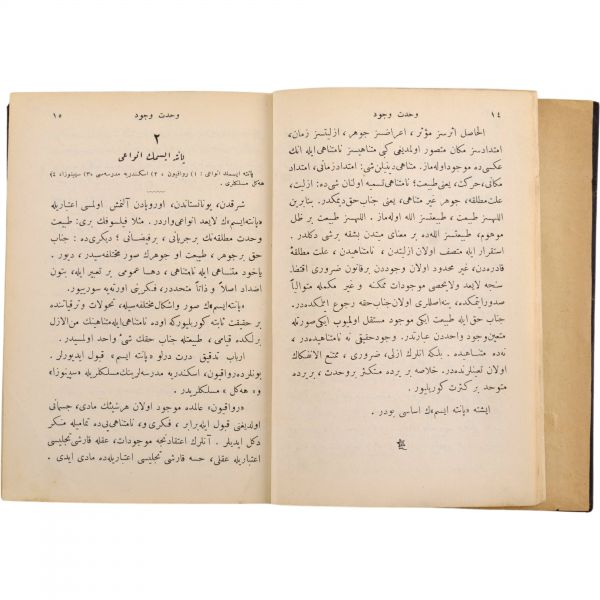 ١٤ وحدت وجود
الحاصل اثرسز مؤثر ، اعراضسز جوهر ، ازليتسز زمان،
امتدادسز مكان متصور اولمديغى كبى متناهيسز نامتناهى ايله انك
عكسى ده موجود اوله‌ماز. متناهى دينيلن شى: امتداد زمانى، امتداد
مكانى، حركت، يعنى طبيعت؛ نامتناهى تسميه اولنان شى ده: ازليت،
علت مطلقه، جوهر غير متناهى، يعنى جناب حق ديمكدر. بنابرين
اللهسز طبيعت ، طبيعتسز الله اوله‌ماز . اللهسز طبيعت بر ظل
موهوم، طبيعتسز الله ده بر معناى ميتدن بشقه برشى دكلدر.
استقرار ايله متصف اولان ازليتدن ، نامتناهيدن ، علت مطلقهٔ
قادره‌دن، غير محدود اولان وجوددن بر قانون ضرورى اقتضا
سنجه لايعد ولايحصى موجودات ممكنه و غير مكمله متوالياً
صدور ايتمكده، ينه اصللرى اولان جناب حقه رجوع ايتمكده‌در.
جناب حق ايله طبيعت ايكى موجود مستقل اولميوب ايكى صورتله
متعين وجود واحددن عبارتدر. وجود حقيقى نه نامتناهيده‌در ،
نه‌ده متناهيده . بلكه انلرك ازلى، ضرورى ، ممتنع الانفكاك
اولان تعينلرنده‌در. خلاصه بر يرده متكثر بر وحدت ، بر يرده
متوحد بر كثرت كوريليور.
ايشته «پانته ايسم»ك اساسى بودر .
وحدت وجود ١٥
٢
پانته ايسمك انواعى
پانته ايسمك انواعى : ١) رواقيون ، ٢) اسكندريه مدرسه‌سى ٣) سپينوزا، ٤)
هه‌كل مسلكلرى .
شرقدن، يونانستاندن، اوروپادن آلنمش اولمسى اعتباريله
«پانته ايسم»ك لايعد انواعى واردر. مثلا فيلسوفك برى: طبيعت
وحدت مطلقه‌نك بر جريانى ، بر فيضانى ؛ ديكرى ده : جناب
حق بر جوهر، طبيعت او جوهرك صور مختلفه‌سيدر ، ديور .
ياخود متناهى ايله نامتناهى ، دها عمومى بر تعبير ايله ، بتون
اضداد اصلاً و ذاتاً متحددر، فكرينى اورته‌يه سوريور.
«پانته ايسم»ك صور واشكال مختلفه‌سيله، تحولات و ترقياتنده
بر حقيقت ثابته كوريليوركه اوده نامتناهى ايله متناهينك من الازل
برلكده قيامى ، طبيعتله جناب حقك شىٔ واحد اولمسيدر.
ارباب تدقيق درت درلو «پانته ايسم» قبول ايديورلر.
بونلرده «رواقيون، اسكندريه مدرسه‌لرينك مسلكلريله «سپينوزا»
و «هه‌كل» مسلكلريدر .
«رواقيون» عالمده موجود اولان هر شيئك مادى، جسمانى
اولديغنى قبول ايله برابر ، فكرى و ، نامتناهى يى ده تماميله منكر
دكل ايديلر . آنلرك اعتقادنجه موجودات ، عقله قارشى تجليسى
اعتباريله عقلى، حسه قارشى تجليسى اعتباريله‌ده مادى ايدى .